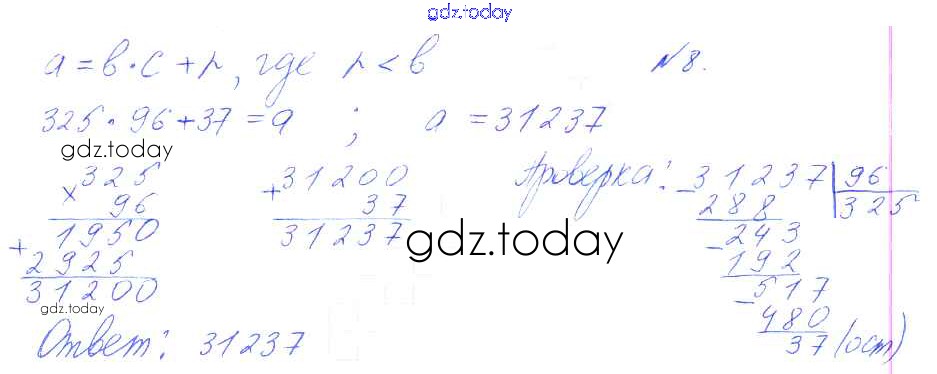 gdz.today
a = в · с + r, где r < в
№ 8.
325 · 96 + 37 = a ; a = 31237
gdz.today
× 325
96
+ 1950
2925
31200
+ 31200
37
31237
gdz.today
Проверка: - 31237 | 96
288 | 325
- 243
192
- 517
480
37 (ост)
gdz.today
Ответ: 31237